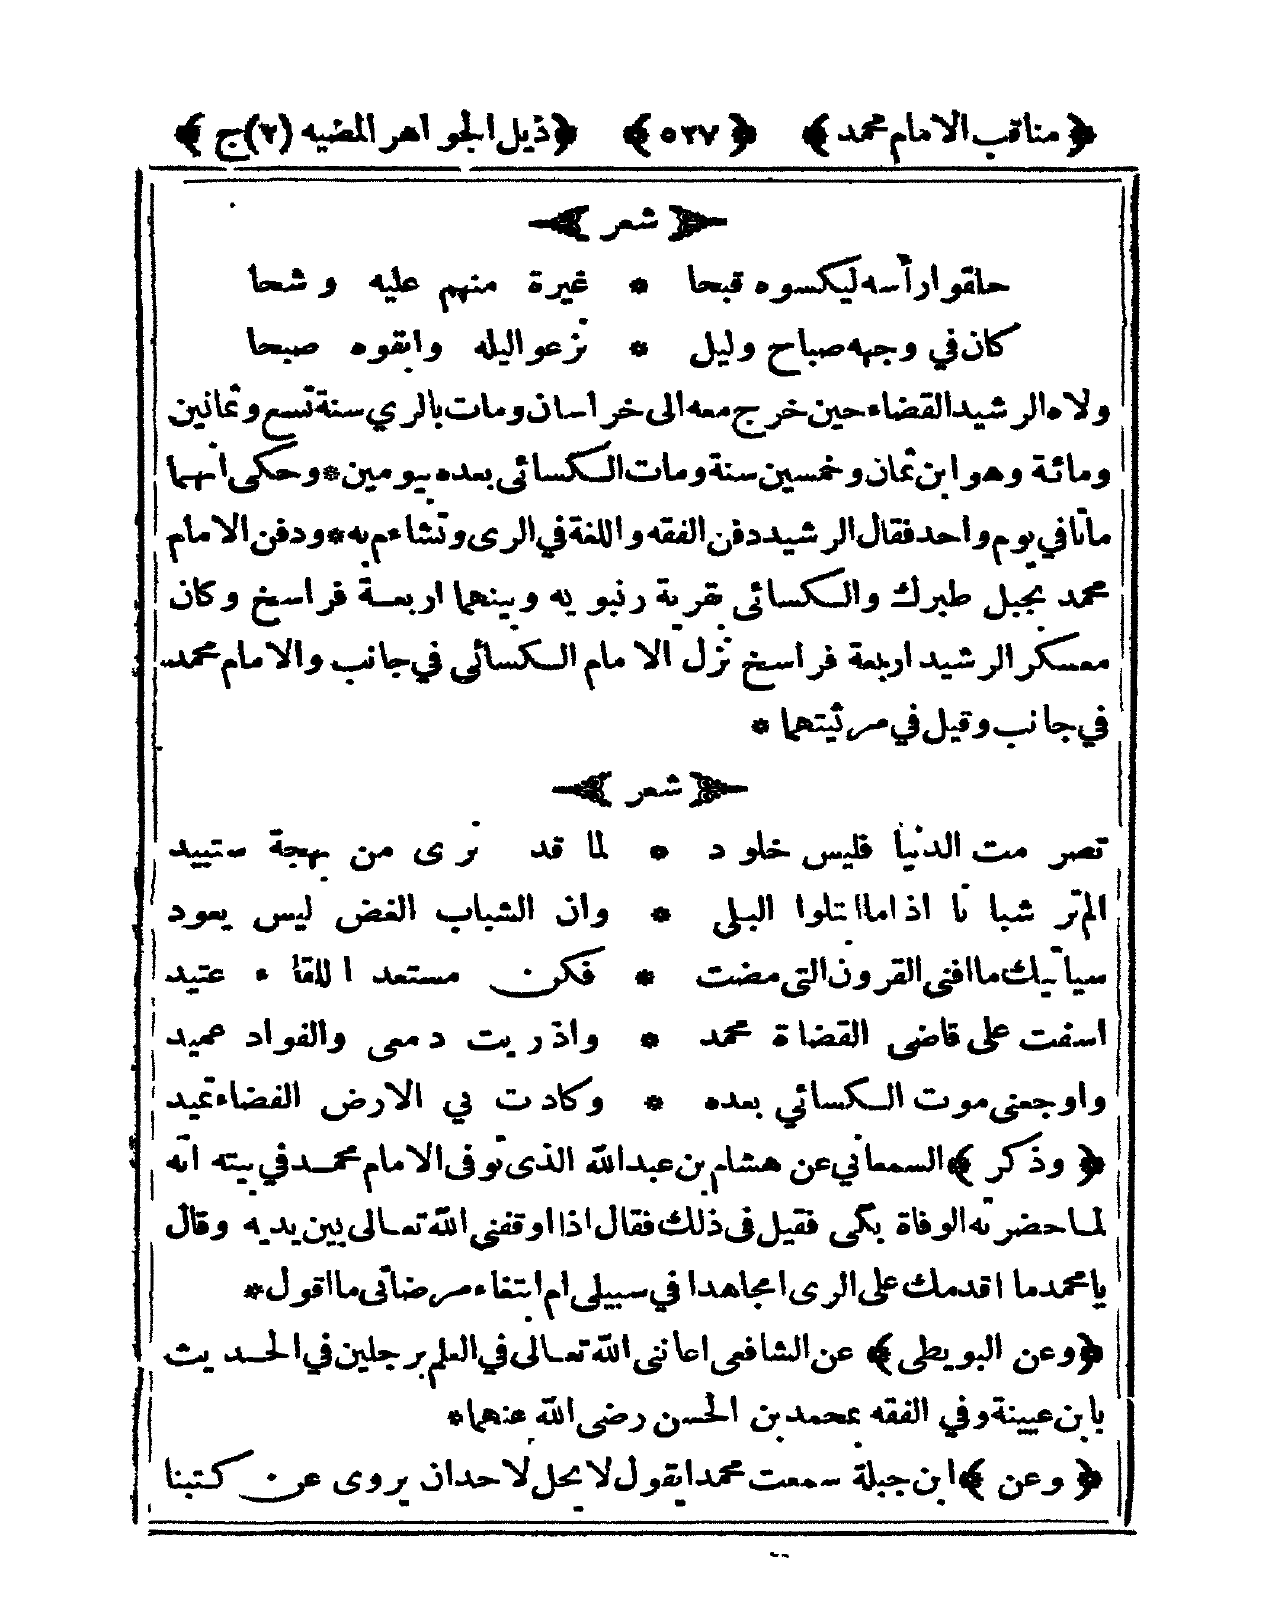 ﴿مناقب الامام محمد﴾ ﴿٥٣٧﴾ ﴿ذيل الجواهر المضيه (٢) ج﴾
شعر
حلقوا رأسه ليكسوه قبحا * غيرة منهم عليه وشحا
كان في وجهه صباح وليل * نزعوا ليله وابقوه صبحا
ولاه الرشيد القضاء حين خرج معه الى خراسان ومات بالري سنة تسع وثمانين
ومائة وهو ابن ثمان وخمسين سنة ومات الكسائى بعده بيومين * وحكى انهما
ماتا في يوم واحد فقال الرشيد دفن الفقه واللغة في الرى وتشاءم به * ودفن الامام
محمد بجبل طبرك والكسائى بقرية رنبويه وبينهما اربعة فراسخ وكان
معسكر الرشيد اربعة فراسخ نزل الامام الكسائى في جانب والامام محمد
في جانب وقيل في مرثيتهما *
شعر
تصرمت الدنيا فليس خلود * لما قد نرى من بهجة ستبيد
الم تر شبانا اذا ما ابتلوا البلى * وان الشباب الغض ليس يعود
سيأتيك ما افنى القرون التى مضت * فكن مستعدا للقاء عتيد
اسفت على قاضى القضاة محمد * واذريت دمعى والفواد عميد
واوجعنى موت الكسائي بعده * وكادت بي الارض الفضاء تميد
﴿وذكر﴾ السمعاني عن هشام بن عبد الله الذى توفى الامام محمد في بيته انه
لما حضرته الوفاة بكى فقيل فى ذلك فقال اذا اوقفنى الله تعالى بين يديه وقال
يا محمد ما اقدمك على الرى امجاهدا في سبيلى ام ابتغاء مرضاتى ما اقول *
﴿وعن البويطى﴾ عن الشافعى اعاننى الله تعالى في العلم برجلين في الحديث
بابن عيينة وفي الفقه بمحمد بن الحسن رضى الله عنهما *
﴿وعن﴾ ابن جبلة سمعت محمدا يقول لا يحل لاحد ان يروى عن كتبنا